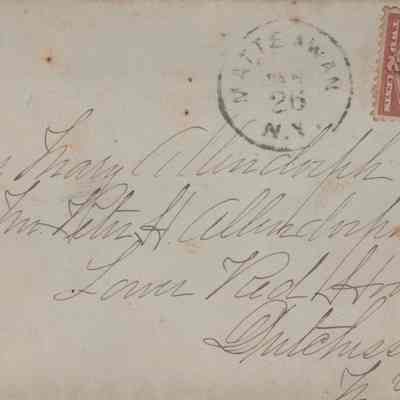 MATTEAWAN
26
N.Y.
TWO CENTS
Mary Allendorph
Peter H. Allendorph
Lower Red Ho
Dutchess
N.